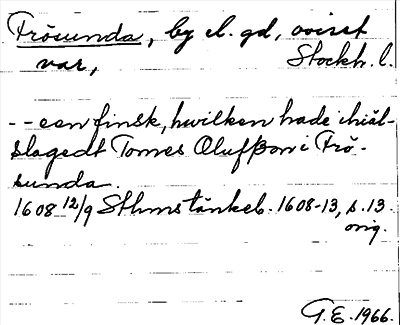 Frösunda, by el. gd, ovisst
var, Stockh. l.
- - een finsk, hwilken hade ihiäl-
slagedt Tomes Olufßon i Frö-
sunda.
1608 12/9 Sthms tänkeb. 1608-13, s. 13.
orig.
G.E. 1966.